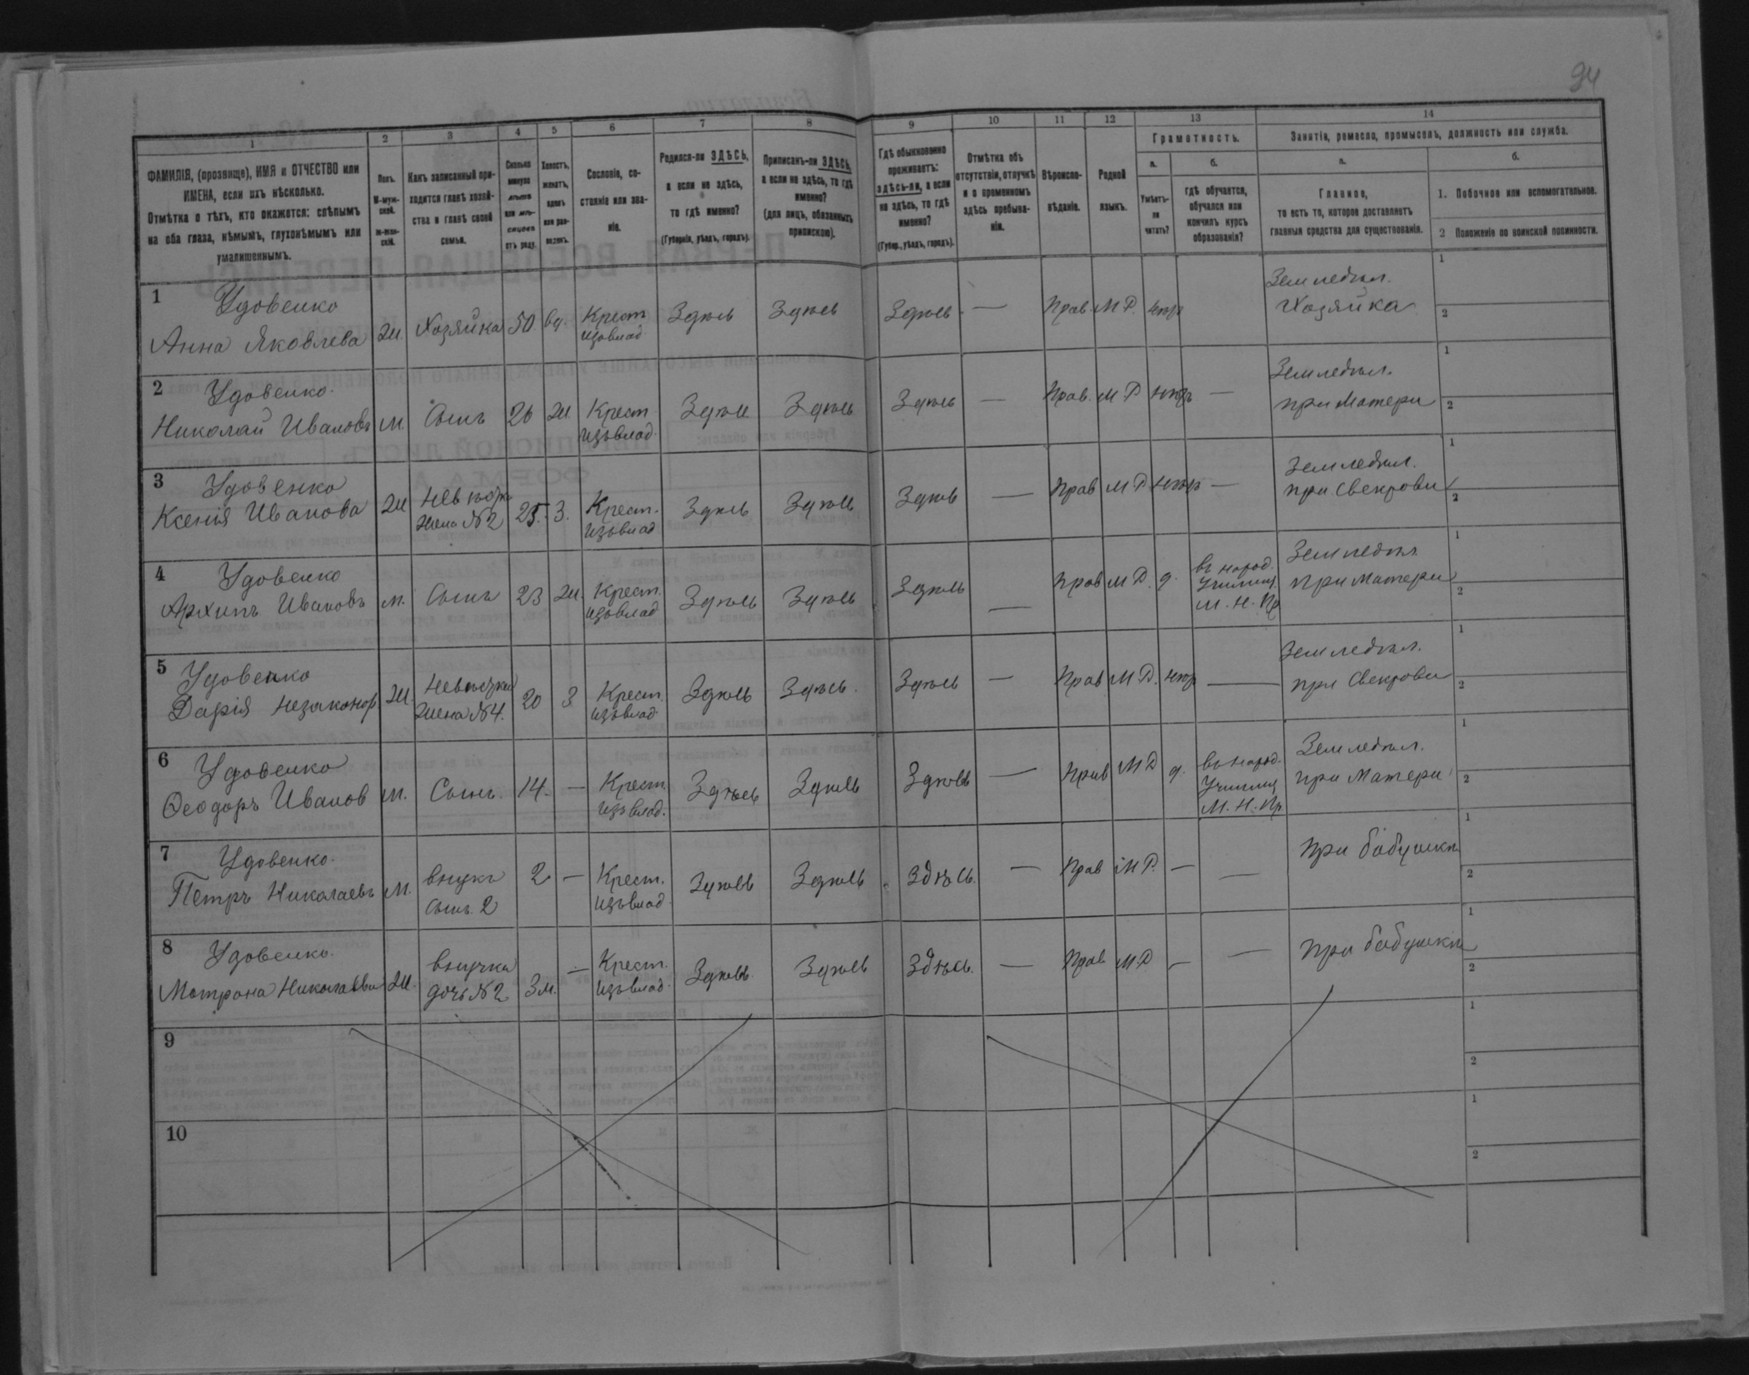 94
1
ФАМИЛІЯ, (прозвище), ИМЯ и ОТЧЕСТВО или
ИМЕНА, если ихъ нѣсколько.
Отмѣтка о тѣхъ, кто окажется: слѣпымъ
на оба глаза, нѣмымъ, глухонѣмымъ или
умалишеннымъ.
2
Полъ.
М-муж-
ской.
Ж-жен-
скій.
3
Какъ записанный при-
ходится главѣ хозяй-
ства и главѣ своей
семьи.
4
Сколько
минуло
лѣтъ
или мѣ-
сяцевъ
отъ роду.
5
Холостъ,
женатъ,
вдовъ
или раз-
веденъ.
6
Сословіе, со-
стояніе или зва-
ніе.
7
Родился-ли ЗДѢСЬ,
а если не здѣсь,
то гдѣ именно?
(Губернія, уѣздъ, городъ).
8
Приписанъ-ли ЗДѢСЬ,
а если не здѣсь, то гдѣ
именно?
(для лицъ, обязанныхъ
припискою).
9
Гдѣ обыкновенно
проживаетъ:
здѣсь-ли, а если
не здѣсь, то гдѣ
именно?
(Губер., уѣздъ, городъ).
10
Отмѣтка объ
отсутствіи, отлучкѣ
и о временномъ
здѣсь пребыва-
ніи.
11
Вѣроиспо-
вѣданіе.
12
Родной
языкъ.
13
Грамотность.
а.
Умѣетъ-
ли
читать?
б.
гдѣ обучается,
обучался или
кончилъ курсъ
образованія?
14
Занятіе, ремесло, промыселъ, должность или служба.
а.
Главное,
то есть то, которое доставляетъ
главныя средства для существованія.
б.
1. Побочное или вспомогательное.
2 Положеніе по воинской повинности.
1
Удовенко
Анна Яковлева
Ж.
Хозяйка
50
вд.
Крест
изъ влад
Здѣсь
Здѣсь
Здѣсь
—
Прав.
М Р.
нѣтъ
Земледѣл.
Хозяйка
1
2
2
Удовенко.
Николай Ивановъ
М.
Сынъ
26
Ж
Крест
изъ влад.
Здѣсь
Здѣсь
Здѣсь
—
Прав.
М Р
нѣтъ
—
Земледѣл.
при Матери
1
2
3
Удовенко
Ксенія Иванова
Ж
Невѣстка
жена №2
25.
З.
Крест.
изъ влад
Здѣсь
Здѣсь
Здѣсь
—
Прав
М Р
нѣтъ
—
Земледѣл.
при Свекрови
1
2
4
Удовенко
Архипъ Ивановъ
М.
Сынъ
23
Ж.
Крест.
изъ влад
Здѣсь
Здѣсь
Здѣсь
—
Прав
М Р.
д.
въ народ.
Училищ
М. Н. Пр
Земледѣл
при Матери
1
2
5
Удовенко
Дарія Незаконор
Ж.
Невѣстка
Жена №4.
20
З
Крест.
изъ влад
Здѣсь
Здѣсь.
Здѣсь
—
Прав
М Р.
нѣтъ
—
Земледѣл.
при Свекрови
1
2
6
Удовенко
Ѳеодоръ Иванов
М.
Сынъ.
14.
—
Крест.
изъ влад.
Здѣсь
Здѣсь
Здѣсь
—
Прав
М Р
д.
въ народ.
Училищ
М. Н. Пр
Земледѣл.
при Матери
1
2
7
Удовенко.
Петръ Николаевъ
М.
внукъ
сынъ. 2
2
—
Крест.
изъ влад.
Здѣсь
Здѣсь
Здѣсь.
—
Прав
М Р.
—
—
при бабушкѣ
1
2
8
Удовенко.
Матрона Николаева
Ж.
внучка
дочь №2
3м.
—
Крест.
изъ влад.
Здѣсь
Здѣсь
Здѣсь.
—
Прав.
М Р
—
—
при бабушкѣ
1
2
9
1
2
10
1
2